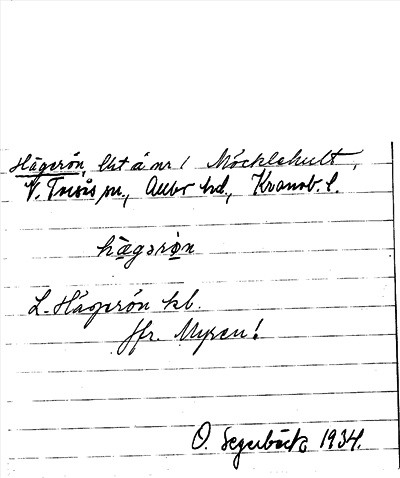 Hägerön, lht å nr 1 Möcklehult,
V. Torsås sn, Allbo hd, Kronob. l.
hägərön
L. Hägerön hl.
Jfr. Myren!
O. Segerbäck 1934.